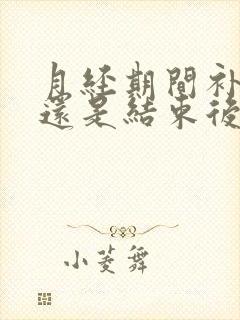 月經期間补
還是結束後
小菱舞